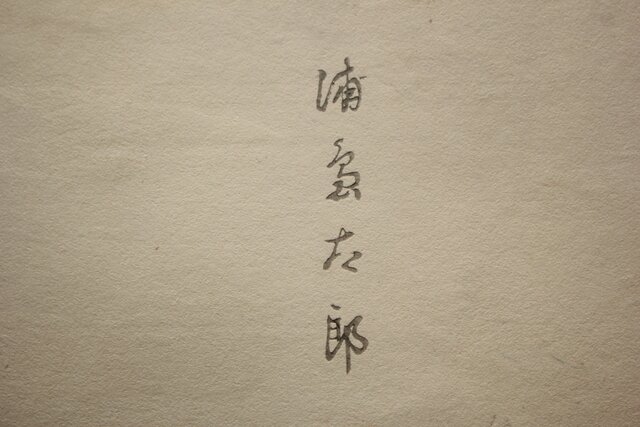 浦島太郎